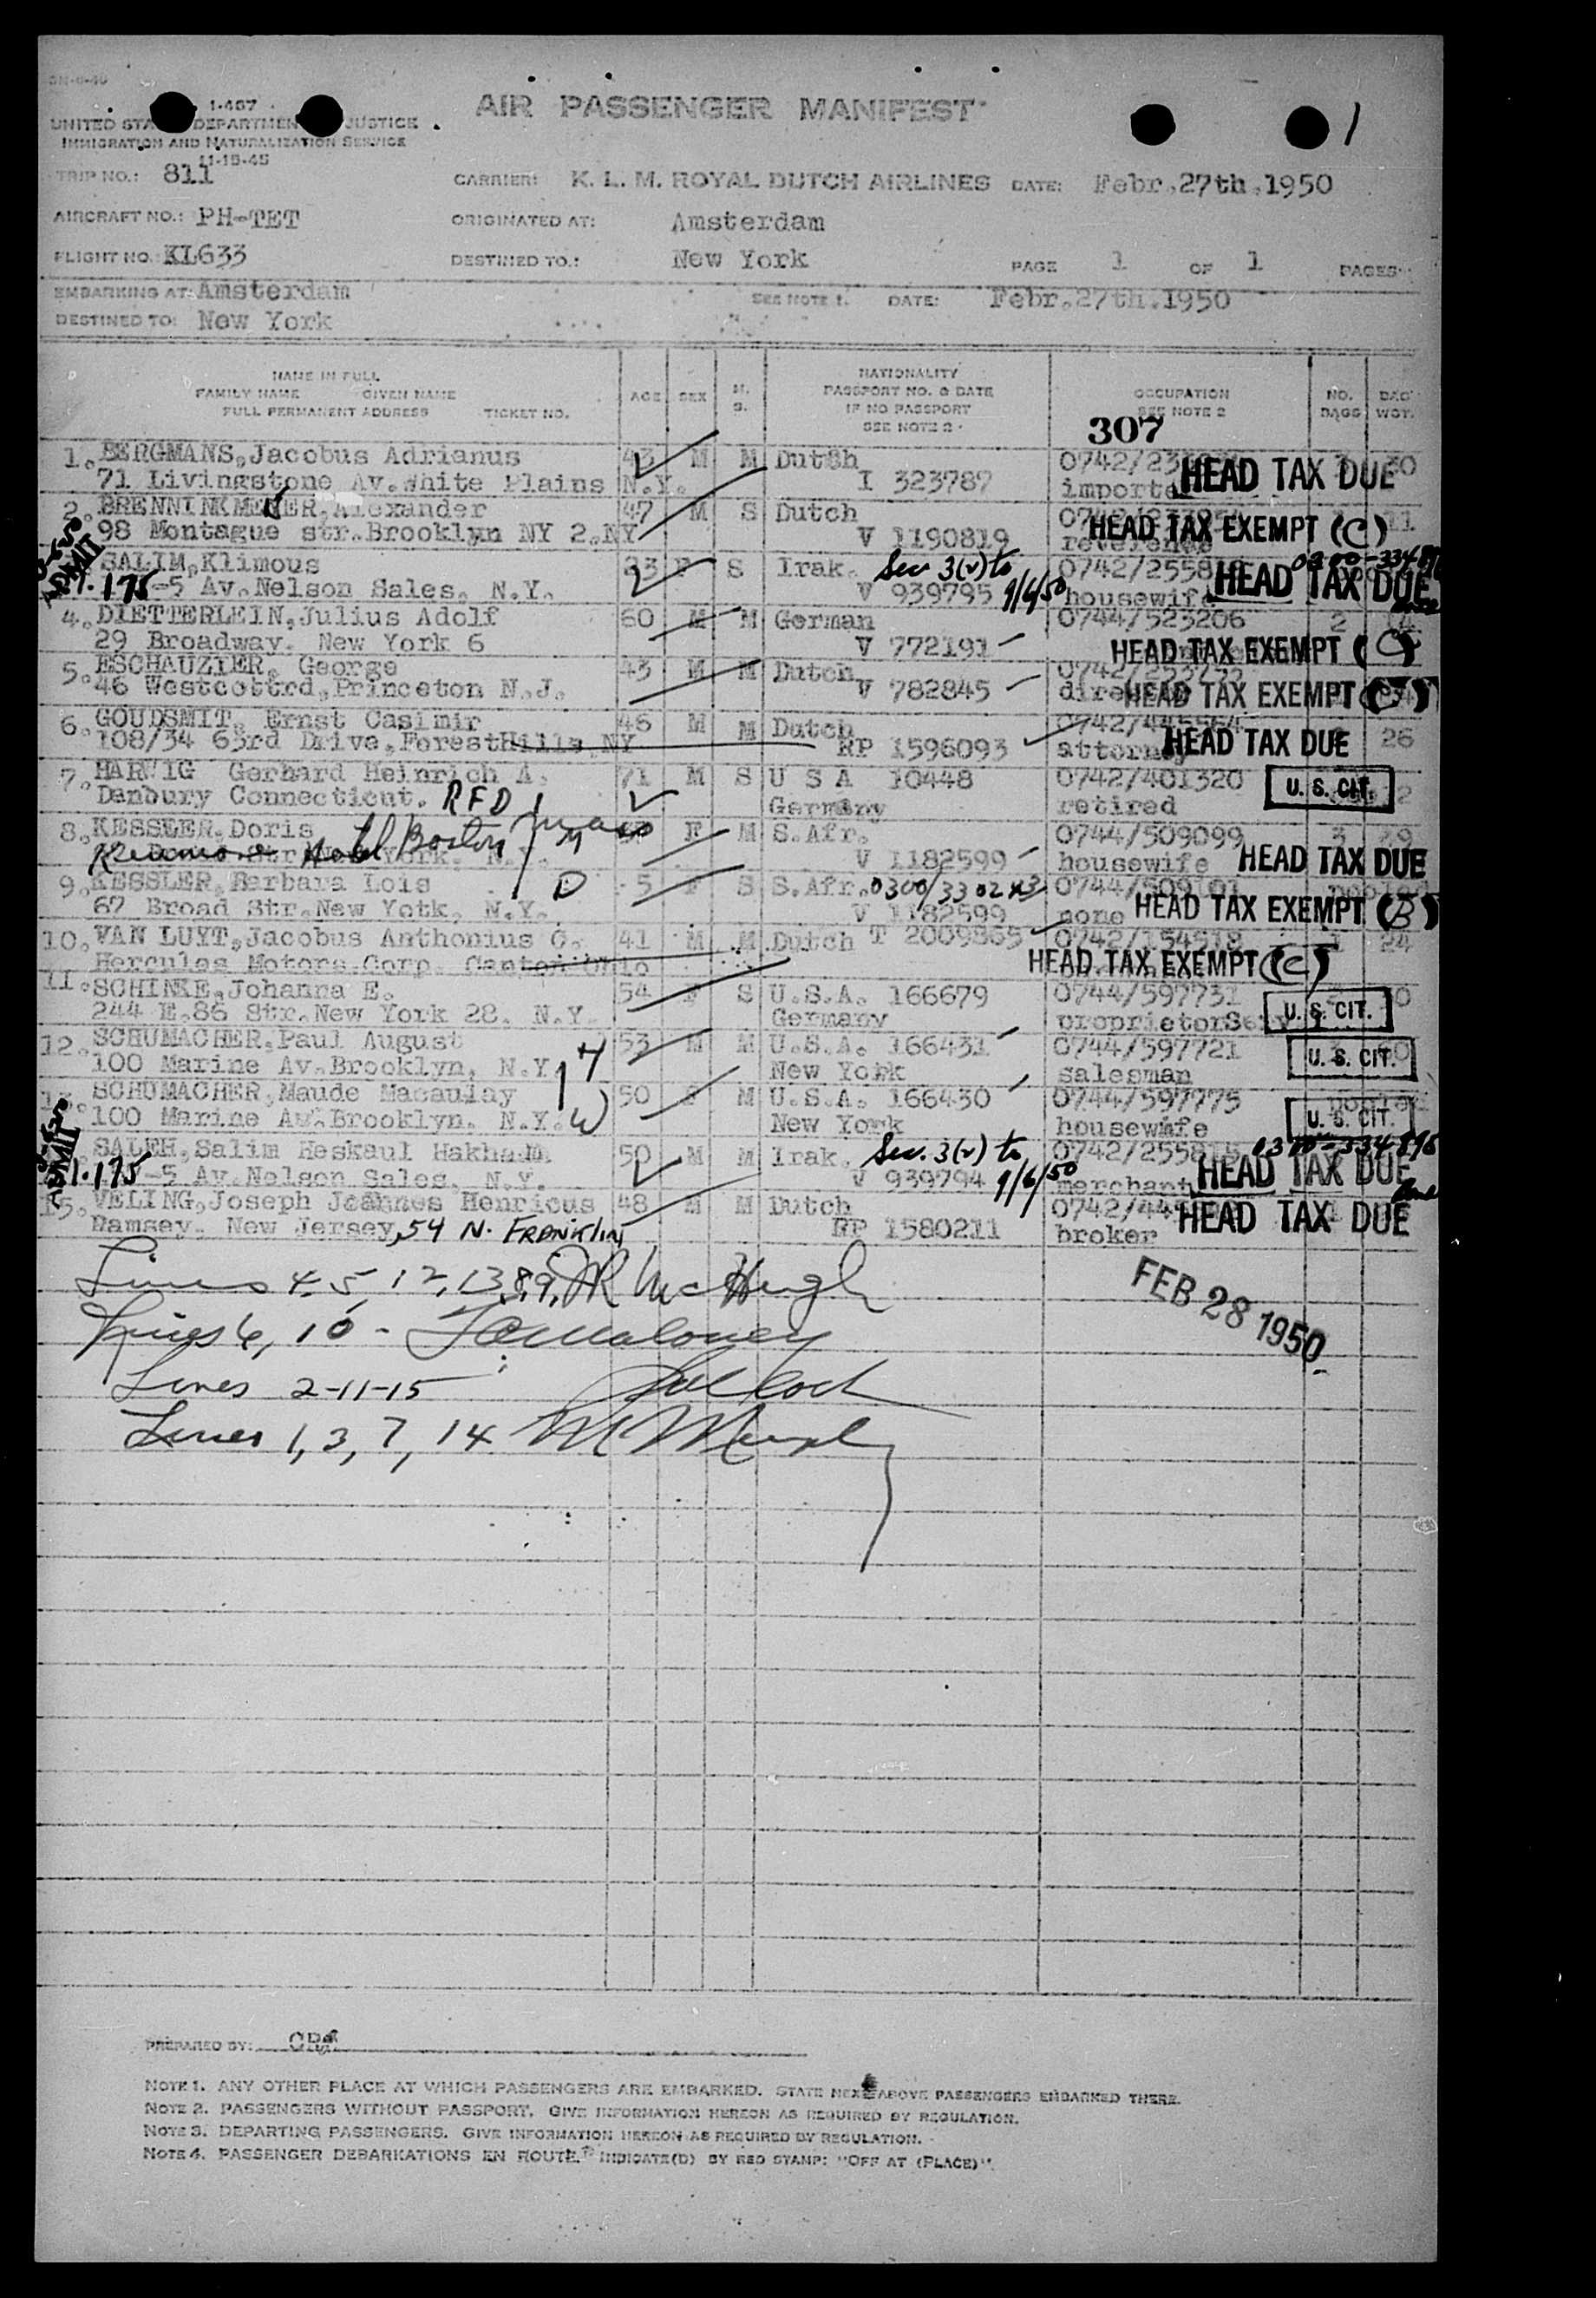 I-467
UNITED STA DEPARTMEN JUSTICE
IMMIGRATION AND NATURALIZATION SERVICE
11-15-45
AIR PASSENGER MANIFEST
1
TRIP NO.: 811 CARRIER: K. L. M. ROYAL DUTCH AIRLINES DATE: Febr.27th.1950
AIRCRAFT NO.: PH-TET ORIGINATED AT: Amsterdam
FLIGHT NO. KL633 DESTINED TO.: New York PAGE 1 OF 1 PAGES
EMBARKING AT: Amsterdam SEE NOTE 1. DATE: Febr.27th.1950
DESTINED TO: New York
NAME IN FULL
FAMILY NAME GIVEN NAME
FULL PERMANENT ADDRESS TICKET NO. AGE SEX M. S. NATIONALITY PASSPORT NO. & DATE IF NO PASSPORT SEE NOTE 2 OCCUPATION SEE NOTE 2 NO. BAGS BAG WGT.
307
1. BERGMANS, Jacobus Adrianus 43 M M Dutch HEAD TAX DUE 30
71 Livingstone Av.White Plains N.Y. I 323787
2. BRENNINKMEYER, Alexander 47 M S Dutch 11
98 Montague str.Brooklyn NY 2.NY V 1190819 HEAD TAX EXEMPT (C)
ADMIT SALIM, Klimous 23 F S Irak. Sec 3(2) to 9/6/50
1.175-5 Av.Nelson Sales. N.Y. V 939795 housewife HEAD TAX DUE
4. DIETTERLEIN, Julius Adolf 60 M M German 0744/523206 2 14
29 Broadway. New York 6 V 772191 HEAD TAX EXEMPT (C)
5. ESCHAUZIER, George 43 M M Dutch
46 Westcottrd, Princeton N.J. V 782845 HEAD TAX EXEMPT (C)
6. GOUDSMIT, Ernst Casimir 46 M M Dutch 26
108/34 63rd Drive, ForestHills NY RP 1596093 HEAD TAX DUE
7. HARWIG Gerhard Heinrich A. 71 M S U S A 10448 0742/401320 U. S. CIT.
Danbury Connecticut. RFD 1 Germany retired
8. KESSLER, Doris F M S.Afr. 0744/509099 3 29
Hotel Boston Mass M V 1182599 housewife HEAD TAX DUE
9. KESSLER, Barbara Lois D 5 F S S.Afr. 0300/330243 0744/509101
67 Broad Str.New Yotk. N.Y. V 1182599 none HEAD TAX EXEMPT (B)
10. VAN LUYT, Jacobus Anthonius C. 41 M M Dutch T 2009865 0742/154518 1 24
Hercules Motors Corp. Canton Ohio HEAD TAX EXEMPT (C)
11. SCHINKE, Johanna E. 54 F S U.S.A. 166679 0744/597731
244 E.86 Str.New York 28. N.Y. Germany proprietor U. S. CIT.
12. SCHUMACHER, Paul August 53 M M U.S.A. 166431 0744/597721
100 Marine Av.Brooklyn, N.Y. H New York salesman U. S. CIT.
SCHUMACHER, Maude Macaulay 50 F M U.S.A. 166430 0744/597775
100 Marine Av.Brooklyn. N.Y. W New York housewife U. S. CIT.
ADMIT SALEH, Salim Heskaul Hakham 50 M M Irak. Sec. 3(2) to 9/6/50
1.175-5 Av.Nelson Sales. N.Y. V 939794 merchant HEAD TAX DUE
15. VELING, Joseph Joannes Henricus 48 M M Dutch
Ramsey. New Jersey, 54 N. FRANKLIN RP 1580211 broker HEAD TAX DUE
Lines 4, 5, 12, 13, 8, 9, JR McHugh
Lines 6, 10 - Maloney
FEB 28 1950
Lines 2-11-15
Lines 1, 3, 7, 14 M Murphy
PREPARED BY:
NOTE 1. ANY OTHER PLACE AT WHICH PASSENGERS ARE EMBARKED. STATE NEXT ABOVE PASSENGERS EMBARKED THERE.
NOTE 2. PASSENGERS WITHOUT PASSPORT. GIVE INFORMATION HEREON AS REQUIRED BY REGULATION.
NOTE 3. DEPARTING PASSENGERS. GIVE INFORMATION HEREON AS REQUIRED BY REGULATION.
NOTE 4. PASSENGER DEBARKATIONS EN ROUTE. INDICATE(D) BY RED STAMP: "OFF AT (PLACE)".